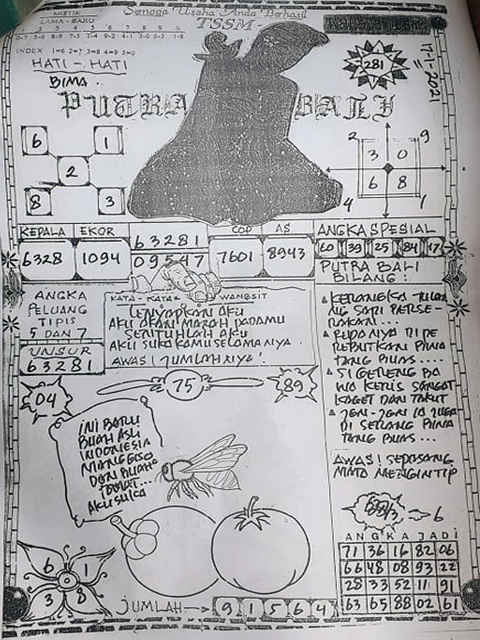 Semoga Usaha Anda Berhasil
TSSM
LAMA - BARU
INDEX 1=6 2=7 3=8 4=9 5=0
HATI - HATI
BIMA..
PUTRA BALI
281
17-1-2021
6 1
2
8 3
2 9
3 0
6 8
4 1
KEPALA EKOR
6328 1094
63281
09547
COP AS
7601 8943
ANGKA SPESIAL
60 39 25 84 17
PUTRA BALI
BILANG:
ANGKA
PELUANG
TIPIS
5 DAN 7
UNSUR
63281
KATA - KATA WANGSIT
LENYAPKAN AKU
AKU AKAN MARAH PADAMU
SENTUHLAH AKU
AKU SUKA KAMU SELAMANYA
AWAS! JUMLAHNYA!
SANGAT
KAGET DAN TAKUT
AWAS! SEPASANG
MATA MENGINTIP
04
75
89
INI BARU
BUAH ASLI
INDONESIA
MANGGIS
DAN BUAH
TOMAT...
AKU SUKA
6 1
3 8
6
ANGKA JADI
71 36 16 82 06
66 48 08 93 22
28 33 52 11 91
63 65 88 02 61
JUMLAH → 9 1 5 6 4